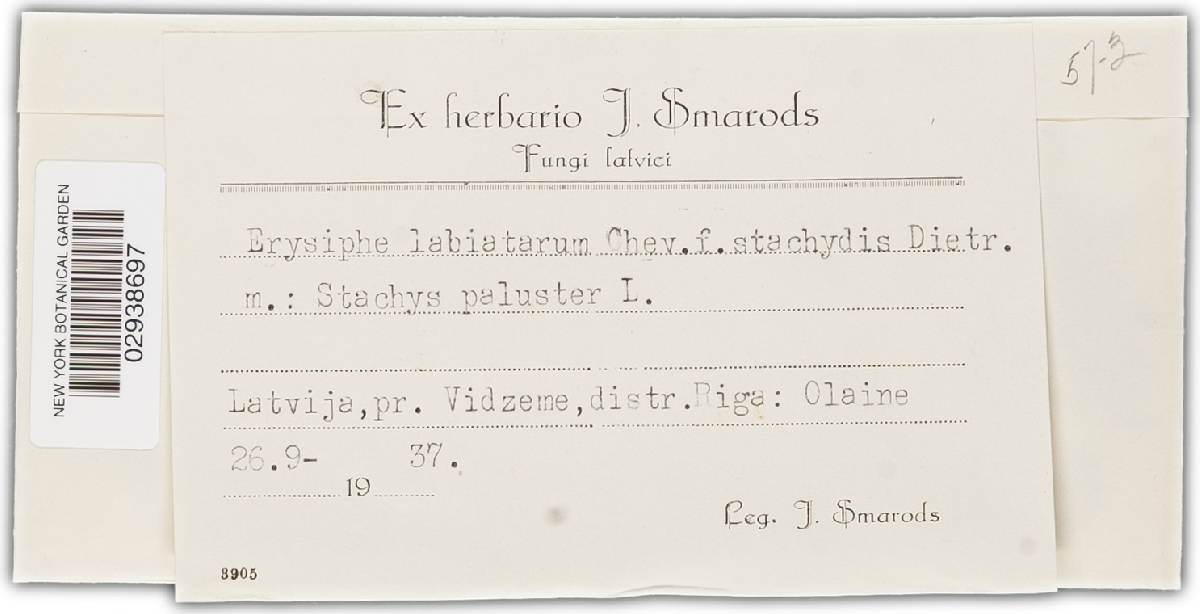 57-3
Ex herbario J. Smarods
Fungi latvici
Erysiphe labiatarum Chev.f.stachydis Dietr.
m.: Stachys paluster L.
Latvija,pr. Vidzeme,distr.Riga: Olaine
26.9- 19 37.
Leg. J. Smarods
8905
NEW YORK BOTANICAL GARDEN
02938697